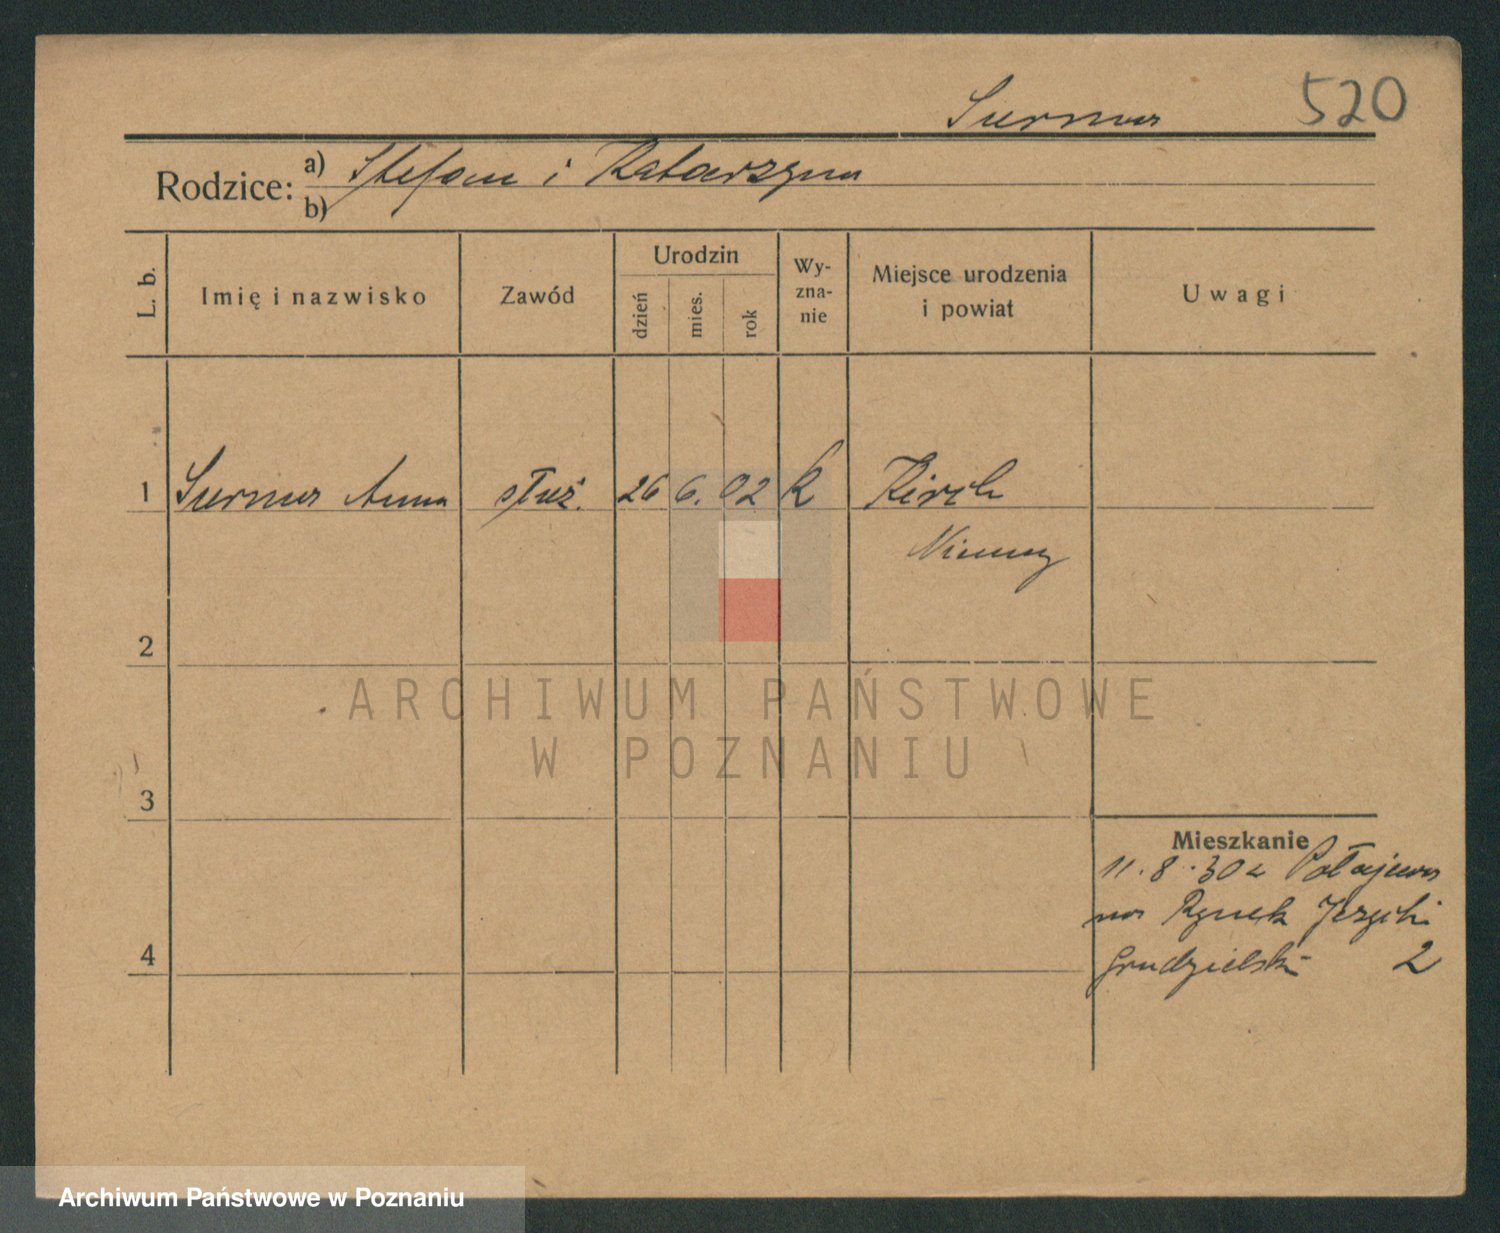 Surma 520
Rodzice: a) Stefan i Katarzyna
b)
L. b. Imię i nazwisko Zawód Urodzin dzień mies. rok Wy-zna-nie Miejsce urodzenia i powiat Uwagi
1 Surma Anna służ. 26 6. 02 k Kirch
Niemcy
2
ARCHIWUM PAŃSTWOWE
W POZNANIU
3
Mieszkanie
11.8.30 z Połajewa
na Rynek
4 Grudzielski 2
Archiwum Państwowe w Poznaniu